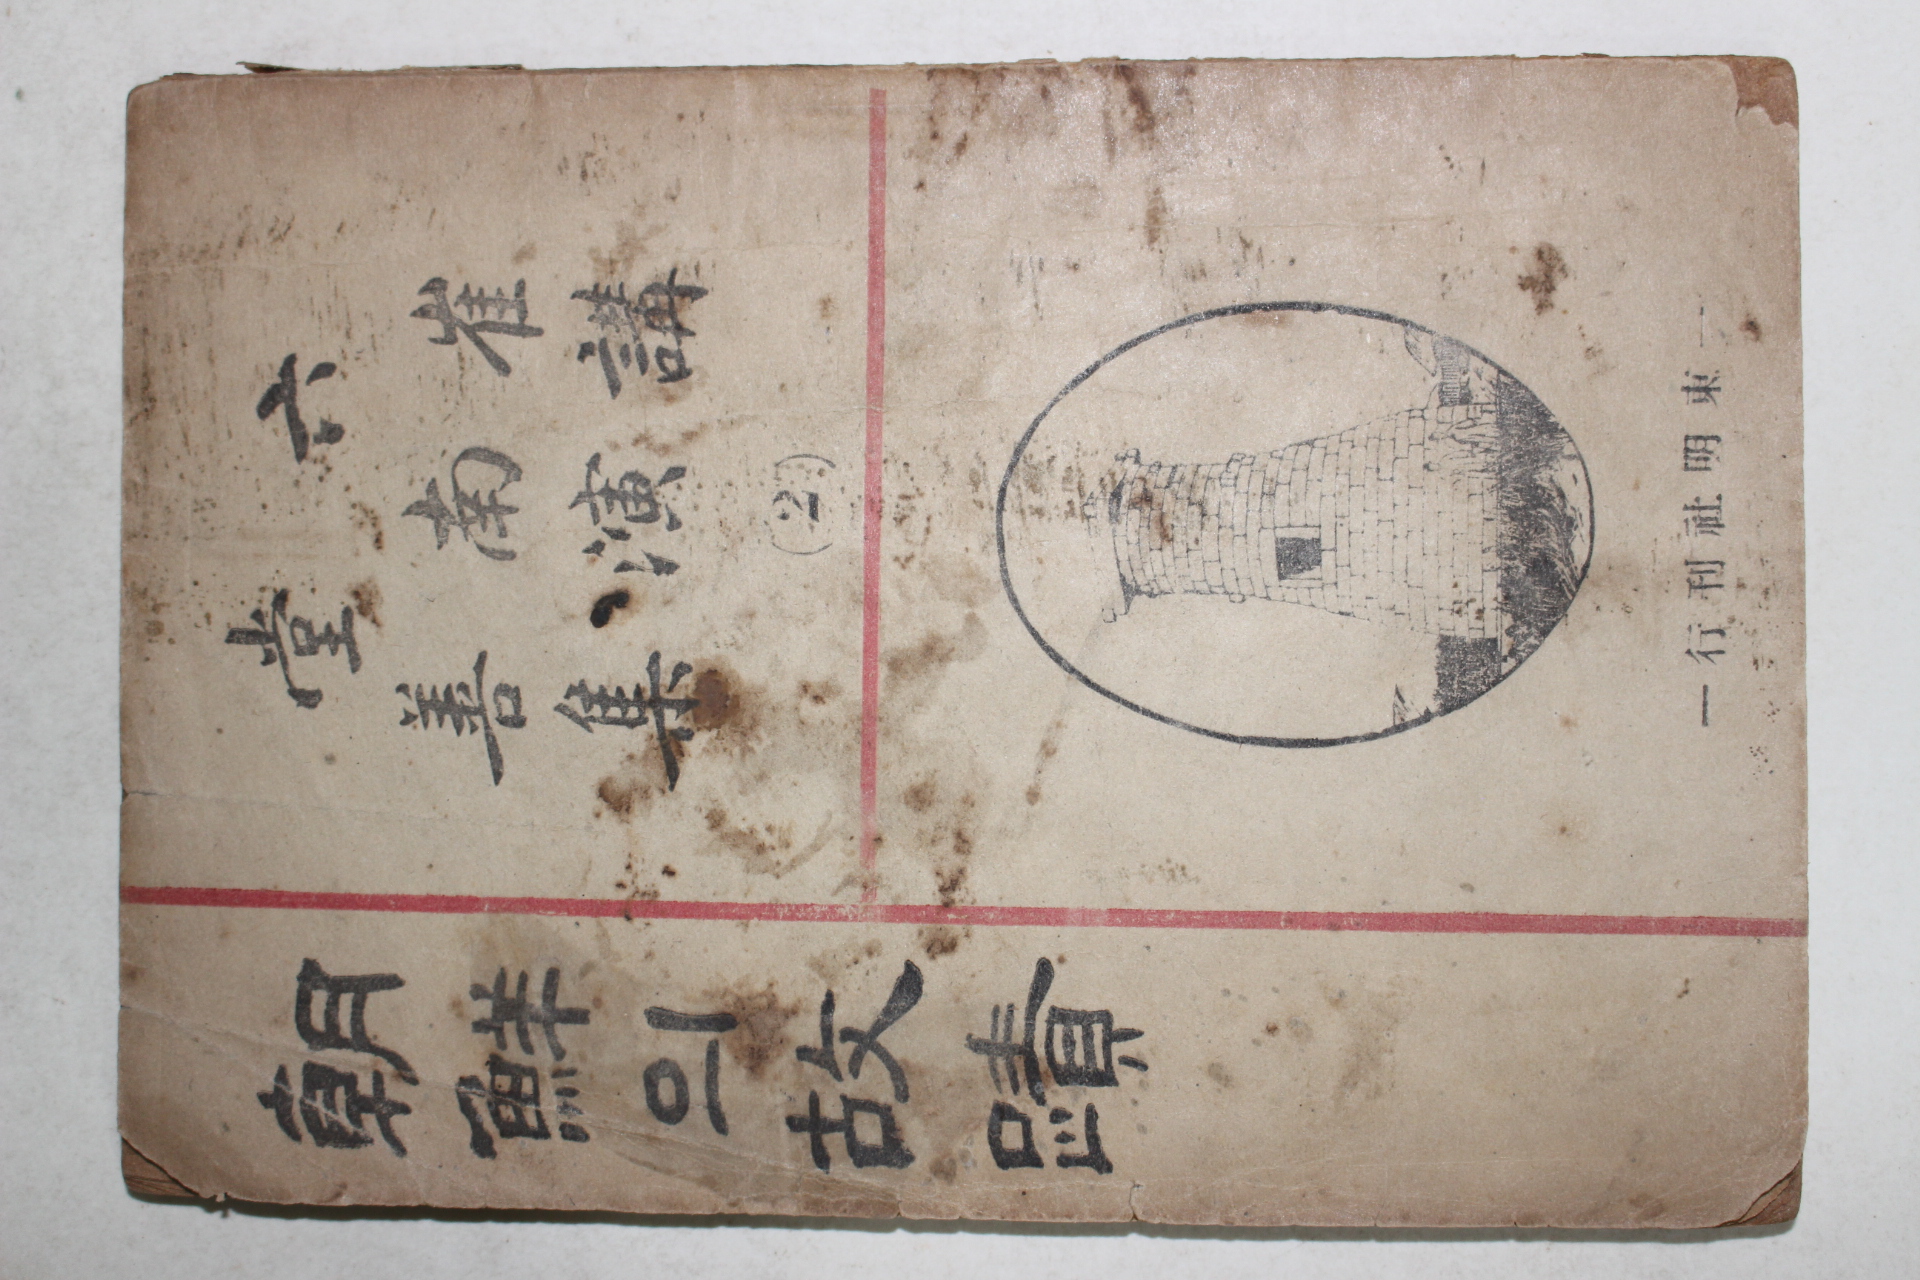 六堂
崔南善
講演集
(2)
朝鮮의故蹟
—東明社刊行—